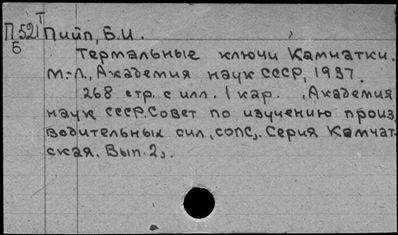 П521Т Пийп, Б.И.
Б
Термальные ключи Камчатки.
М.-Л., Академия наук СССР, 1937.
268 стр. с илл. 1 кар. (Академия
наук СССР. Совет по изучению произ
водительных сил, СОПС). Серия Камчат
ская. Вып. 2).